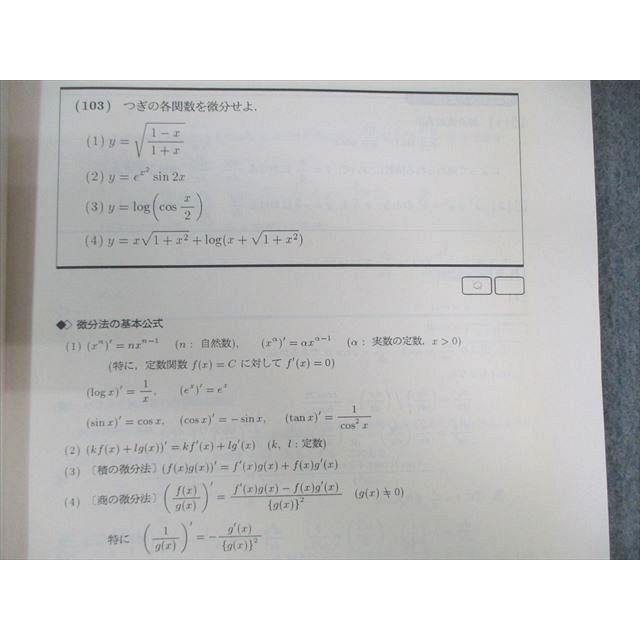 (103) つぎの各関数を微分せよ.
(1) y = √((1−x)/(1+x))
(2) y = e^{x²} sin 2x
(3) y = log(cos x/2)
(4) y = x√(1+x²) + log(x + √(1+x²))
◆◇ 微分法の基本公式
(1) (xⁿ)′ = nxⁿ⁻¹ (n : 自然数), (x^α)′ = αx^{α−1} (α : 実数の定数, x > 0)
(特に, 定数関数 f(x) = C に対して f′(x) = 0)
(log x)′ = 1/x, (eˣ)′ = eˣ
(sin x)′ = cos x, (cos x)′ = − sin x, (tan x)′ = 1/cos² x
(2) (kf(x) + lg(x))′ = kf′(x) + lg′(x) (k, l : 定数)
(3) 〔積の微分法〕(f(x)g(x))′ = f′(x)g(x) + f(x)g′(x)
(4) 〔商の微分法〕(f(x)/g(x))′ = (f′(x)g(x) − f(x)g′(x))/{g(x)}² (g(x) ≠ 0)
特に (1/g(x))′ = − g′(x)/{g(x)}²